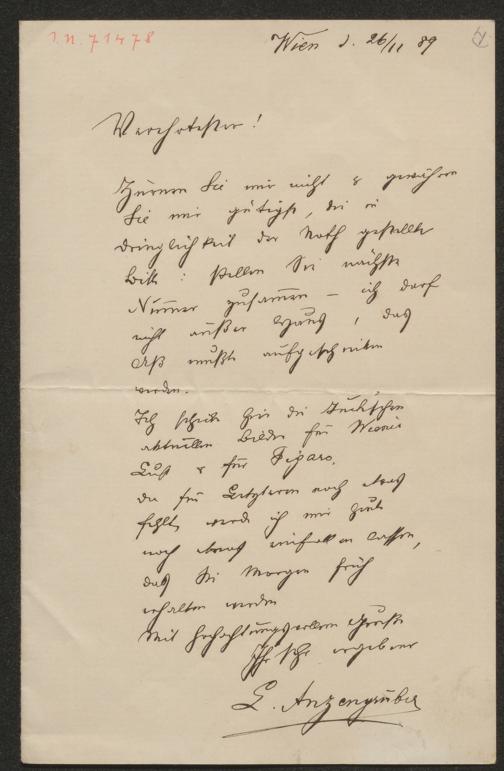 I.N. 71478
Wien d. 26/11 89
Verehrtester!
Zürnen Sie mir nicht & gewähren
Sie mir gütigst, die in
Dringlichkeit der Noth gestellte
Bitte: stellen Sie nächste
Nummer zusammen – ich darf
nicht außer Haus, das
Aß mußte aufgeschnitten
werden.
Ich schicke hier die
aktuellen Bilder für Wiener
Luft & für Figaro.
da für Letzteren noch etwas
fehlt, werde ich mir heute
noch etwas einfallen lassen,
daß Sie Morgen früh
erhalten werden
Mit hochachtungsvollem Gruße
Ihr sehr ergebener
L. Anzengruber